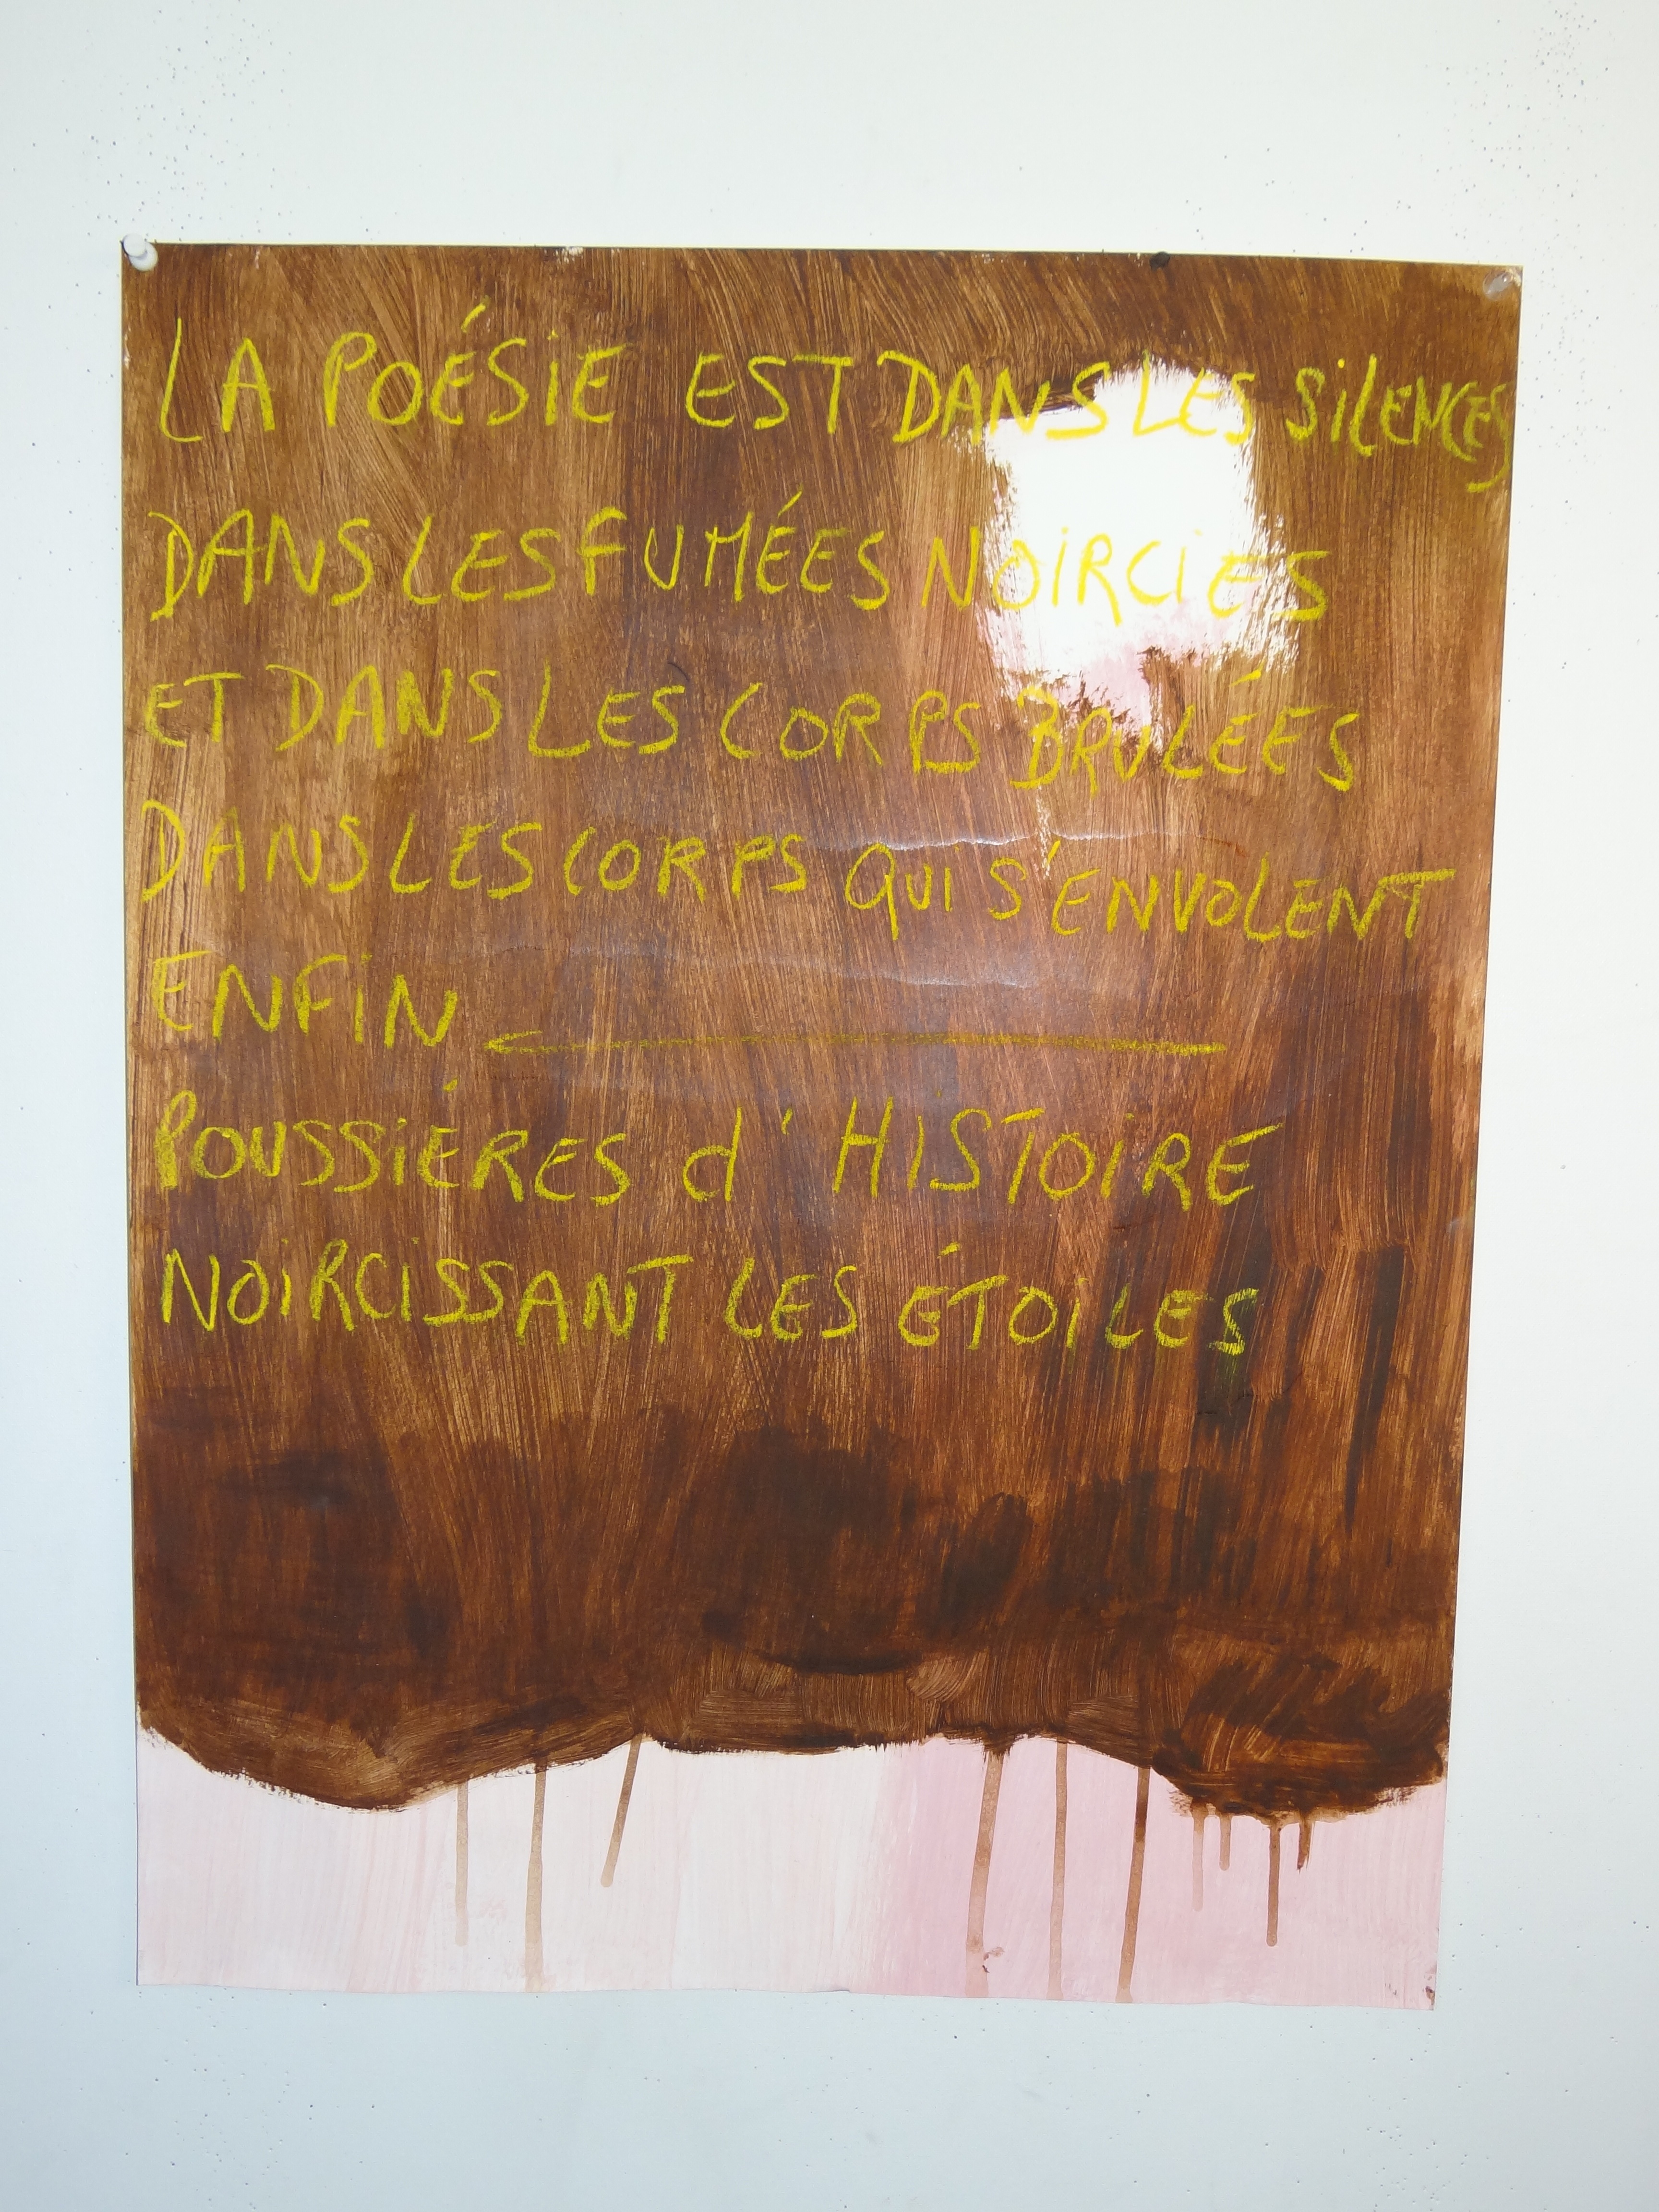 LA POÉSIE EST DANS LES SILENCES
DANS LES FUMÉES NOIRCIES
ET DANS LES CORPS BRULÉES
DANS LES CORPS QUI S'ENVOLENT
ENFIN
POUSSIÉRES d'HISTOIRE
NOIRCISSANT LES ÉTOILES